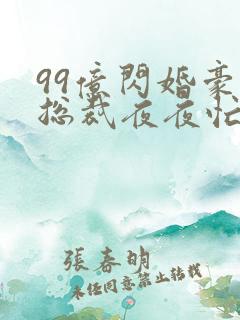 99億閃婚豪
總裁夜夜忙
張春明
未經同意禁止转载